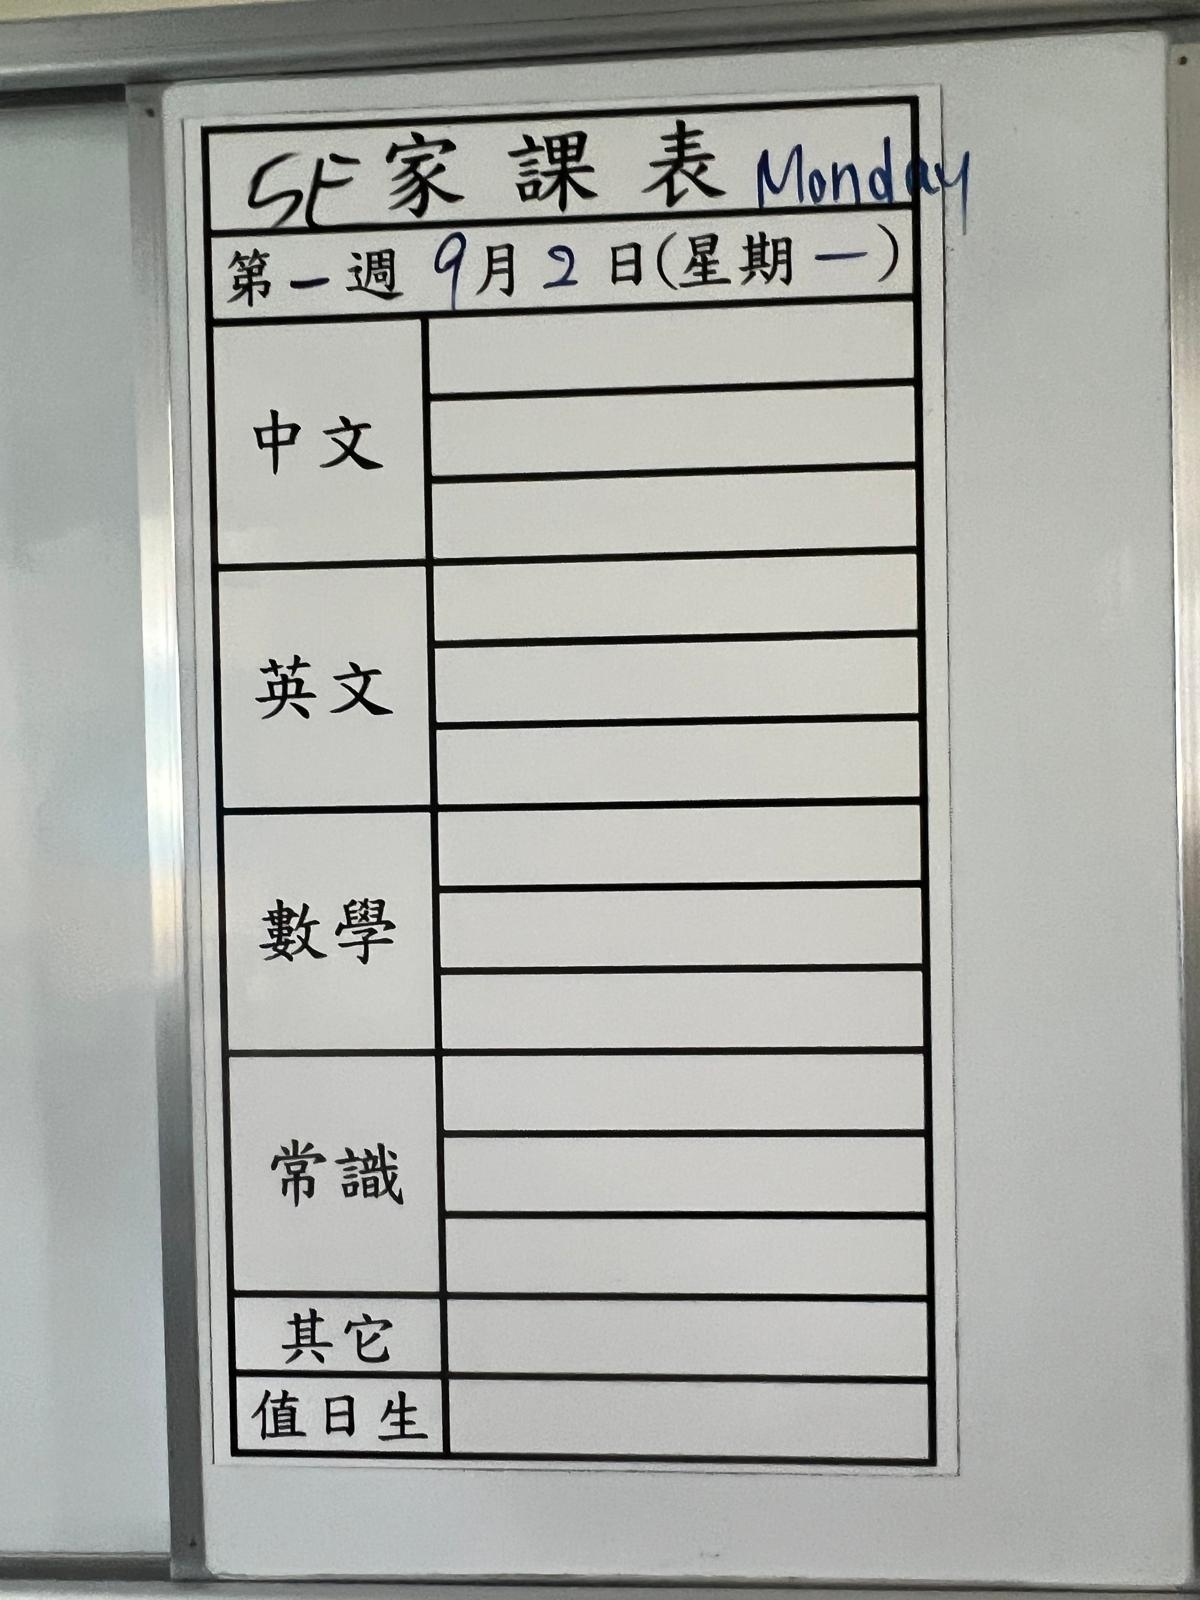 5E家課表 Monday
第一週 9月2日(星期一)
中文
英文
數學
常識
其它
值日生